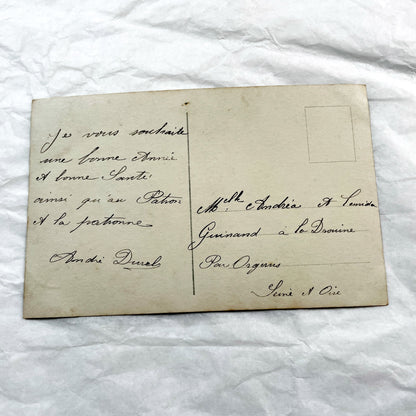 Je vous souhaite
une bonne Année
et bonne Santé
ainsi qu'au Patron
et a la patronne
André Duval
Melle Andréa et
Guinand à la
Par Orgerus
Seine et Oise